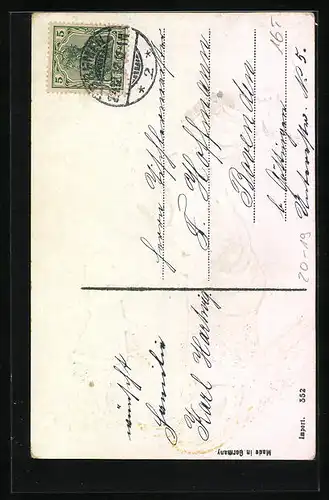 wünscht
Familie
Karl Hartwig
Herrn
F. Hoffmann
Bovenden
b. Göttingen
N 5.
5 5
* 2 *
168
20-19
Made in Germany
Import. 352